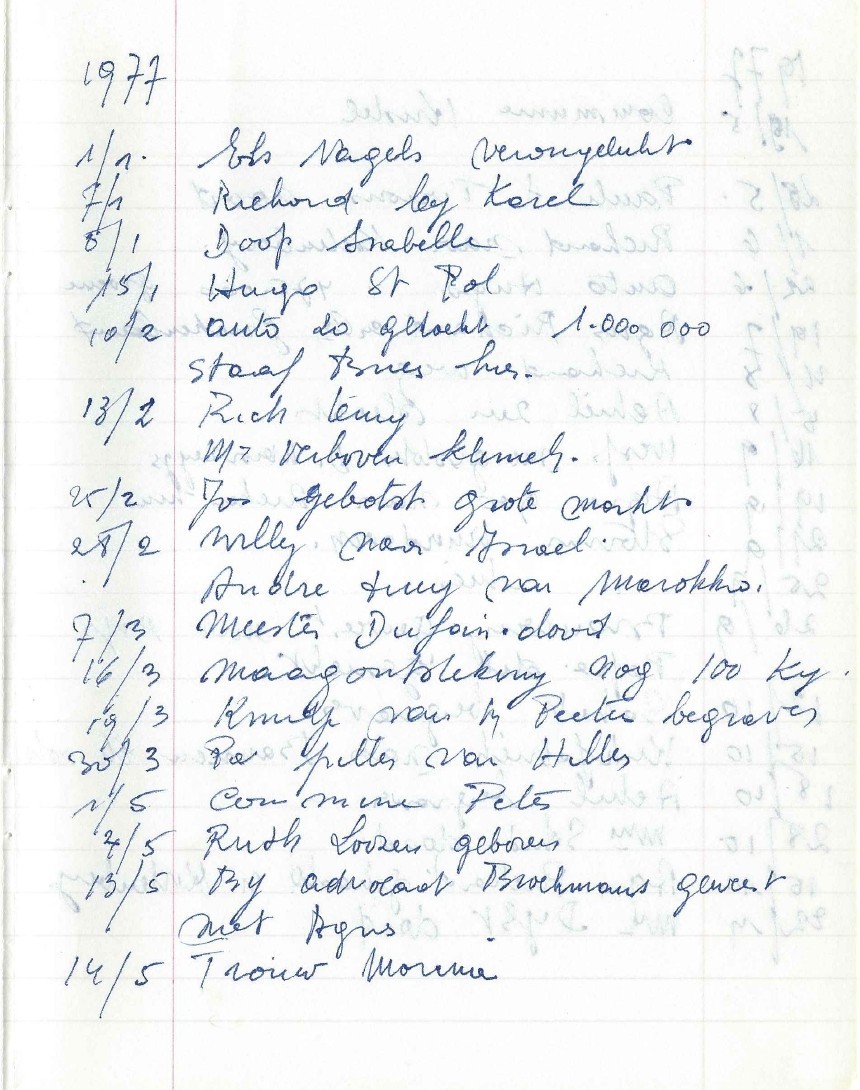 1977
1/1. Els Nagels verongelukt
7/1 Richard by Karel
8/1 Doop Isabelle
15/1 Hugo St Pol
10/2 auto do gekocht 1.000 000
Staaf Bries
13/2 Rich
Mr Verboven
25/2 Jos gebotst grote markt
28/2 Willy naar Israel.
Andre terug van Marokko.
7/3 Meester Dufain. dood
16/3 Maagontsteking nog 100 Kg.
19/3 van Peeters begraven
30/3 Pa pillen van Hilles
1/5 Communie Peter
4/5 Ruth Loozen geboren
13/5 By advocaat Broekmans geweest
met Agnes
14/5 Trouw